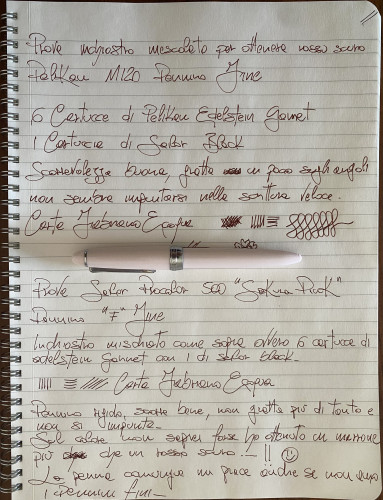 Prova inchiostro mescolato per ottenere rosso scuro
Pelikan M120 Pennino Fine
6 Cartucce di Pelikan Edelstein Garnet
1 Cartuccia di Sailor Black
Scorrevolezza buona, gratta un poco sugli angoli
non sembra impuntarsi nella scrittura veloce.
Carta Fabriano Ecoqua
Prova Sailor Procolor 500 "Sakura Pink"
Pennino "F" Fine
Inchiostro mischiato come sopra ovvero 6 cartucce di
edelstein garnet con 1 di sailor black.
Carta Fabriano Ecoqua
Pennino rigido, scorre bene, non gratta più di tanto e
non si impunta.
Sul colore non saprei forse ho ottenuto un marrone
più che un rosso scuro...! !!
La penna comunque mi piace anche se non amo
i pennini fini-